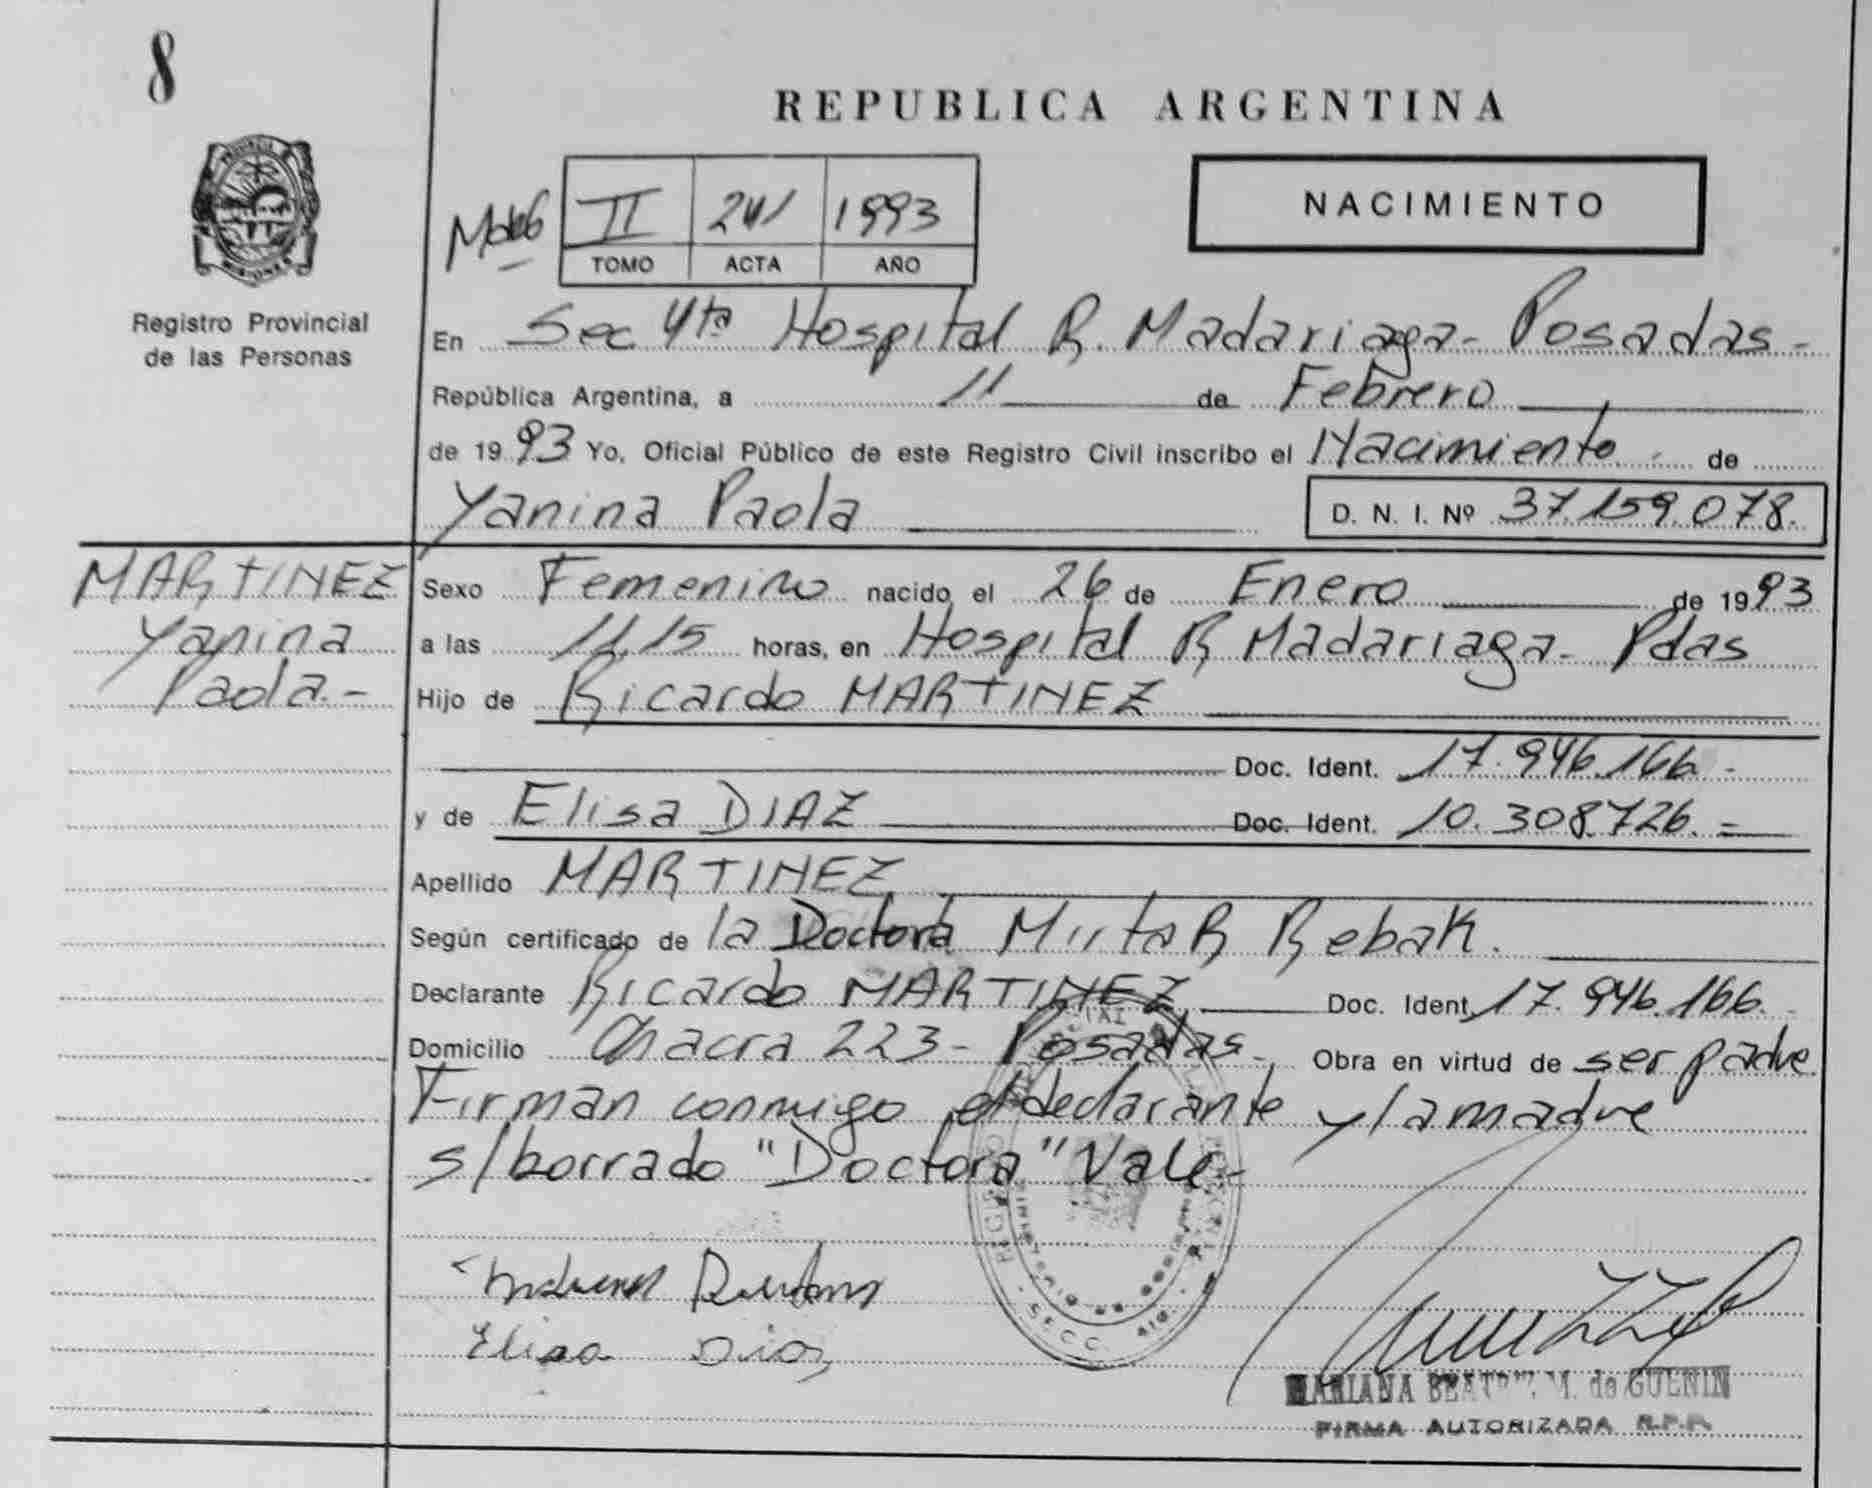 8
REPUBLICA ARGENTINA
II 241 1993
TOMO ACTA AÑO
NACIMIENTO
MISIONES
Registro Provincial
de las Personas
En Sec 4ta Hospital R. Madariaga- Posadas-
República Argentina, a 11 de Febrero
de 1993 Yo, Oficial Público de este Registro Civil inscribo el Nacimiento de
Yanina Paola D. N. I. Nº 37.159.078.
MARTINEZ
Yanina
Paola.-
Sexo Femenino nacido el 26 de Enero de 1993
a las 11,15 horas, en Hospital R Madariaga- Pdas
Hijo de Ricardo MARTINEZ
Doc. Ident. 17.946.166.-
y de Elisa DIAZ Doc. Ident. 10.308.726.=
Apellido MARTINEZ
Según certificado de la Doctora Mirta R Rebak.
Declarante Ricardo MARTINEZ Doc. Ident. 17.946.166.-
Domicilio Chacra 223- Posadas- Obra en virtud de ser padre
Firman conmigo el declarante y la madre
s/borrado "Doctora" Vale-
Elisa Diaz
MARIANA M. de GUENIN
FIRMA AUTORIZADA R.P.P.